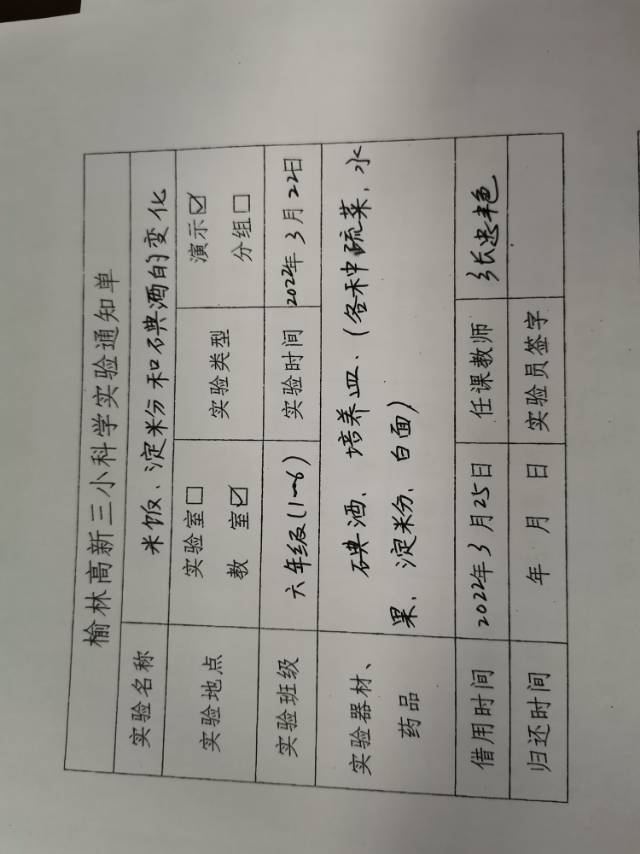 榆林高新三小科学实验通知单
实验名称 米饭、淀粉和碘酒的变化
实验地点 实验室☐ 教 室☑ 实验类型 演示☑ 分组☐
实验班级 六年级(1~6) 实验时间 2022年3月22日
实验器材、药品 碘酒、培养皿、(各种蔬菜、水
果、淀粉、白面)
借用时间 2022年3月25日 任课教师 张忠艳
归还时间 年 月 日 实验员签字